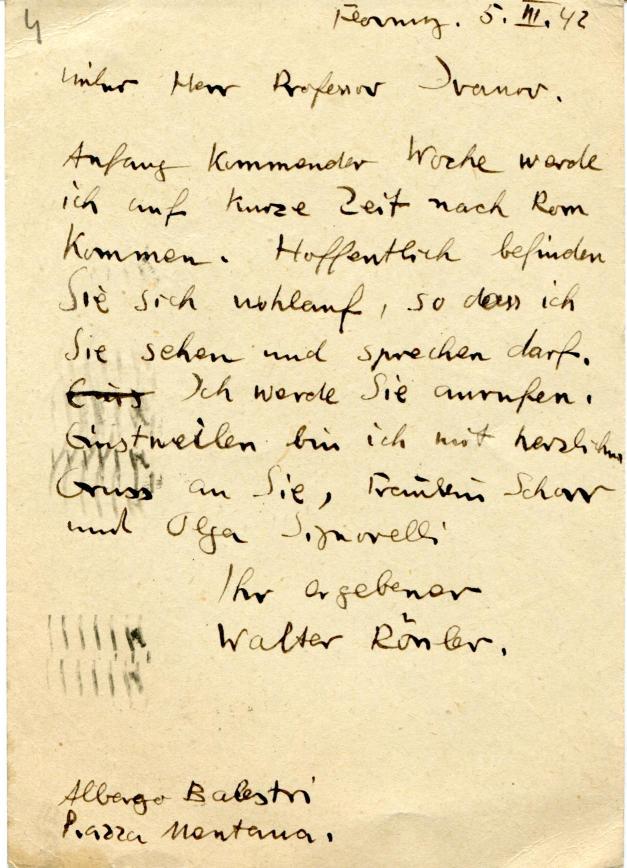 4
Florenz. 5. III. 42
lieber Herr Professor Ivanov.
Anfang Kommender Woche werde
ich auf Kurze Zeit nach Rom
Kommen. Hoffentlich befinden
Sie sich wohlauf, so dass ich
Sie sehen und sprechen darf.
Ich werde Sie anrufen.
Einstweilen bin ich mit herzlichem
Gruss an Sie, Fräulein Schorr
und Olga Signorelli
Ihr ergebener
Walter Rössler.
Albergo Balestri
Piazza Mentana.